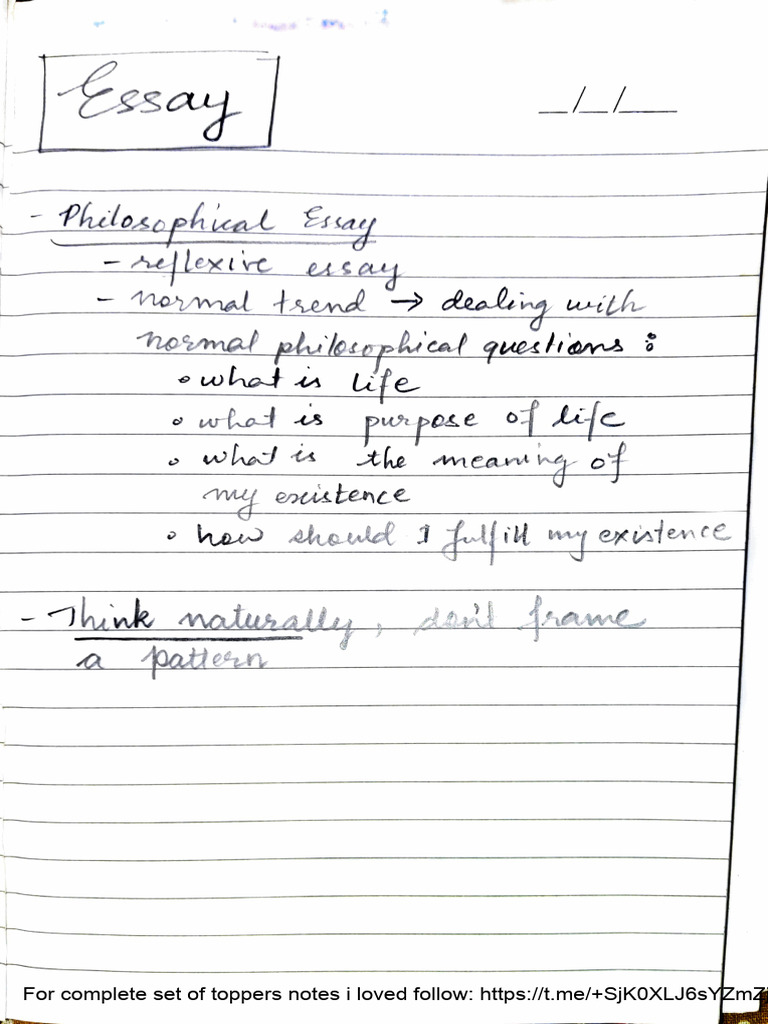 Essay
__/__/___
- Philosophical Essay
- reflexive essay
- normal trend → dealing with
normal philosophical questions :
• what is life
• what is purpose of life
• what is the meaning of
my existence
• how should I fulfill my existence
- Think naturally, don't frame
a pattern
For complete set of toppers notes i loved follow: https://t.me/+SjK0XLJ6sYZmZ